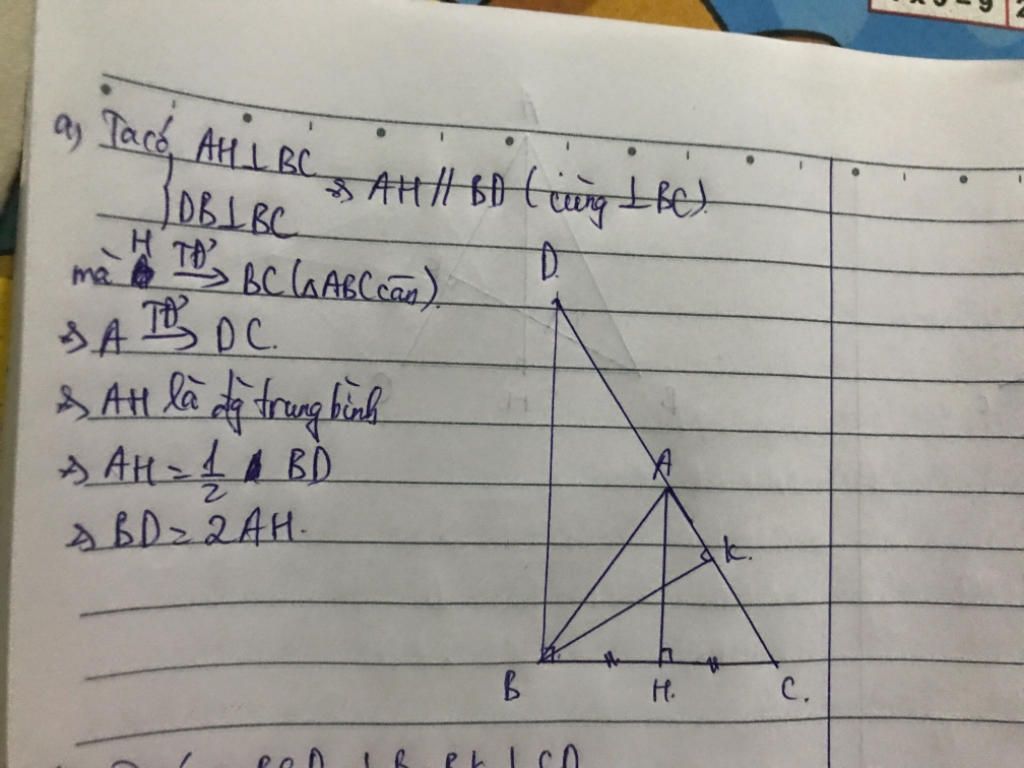 a, Ta có { AH ⊥ BC
DB ⊥ BC
⇒ AH // BD (cùng ⊥ BC).
mà H TĐ→ BC (△ABC cân).
⇒ A TĐ→ DC.
⇒ AH là đg trung bình
⇒ AH = 1/2 BD
⇒ BD = 2AH.
D.
A
K.
B
H.
C.